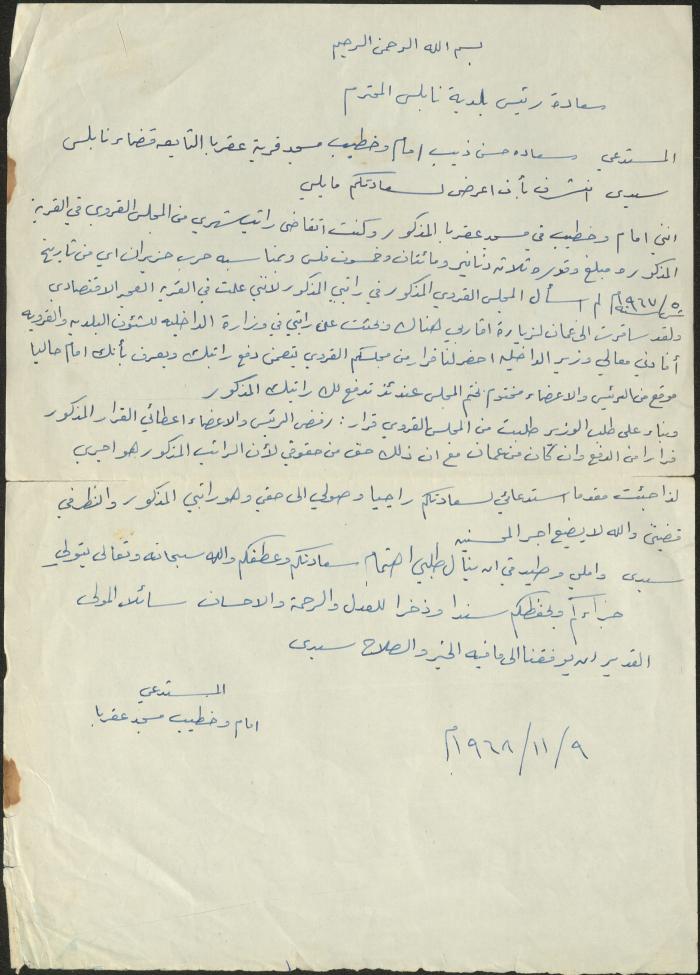 بسم الله الرحمن الرحيم
سعادة رئيس بلدية نابلس المحترم
المستدعي سعاده حسن ذيب امام وخطيب مسجد قرية عقربا التابعه قضاء نابلس
سيدي اتشرف بأن اعرض لسعادتكم مايلي
انني امام وخطيب في مسجد عقربا المذكور وكنت اتقاضى راتب شهري من المجلس القروي في القرية
المذكوره مبلغ وقدره ثلاثة دنانير ومائتان وخمسون فلس وبمناسبه حرب حزيران اي من تاريخ
١٩٦٧م لم اسأل المجلس القروي المذكور في راتبي المذكور لانني علمت في القريه العجز الاقتصادي
ولقد سافرت الى عمان لزيارة اقاربي هناك وبحثت على راتبي في وزارة الداخليه للشئون البلديه والقرويه
أفادني معالي وزير الداخليه احضر لنا قرار من مجلسكم القروي يتضمن دفع راتبك ويعرف بأنك امام حاليا
موقع من الرئيس والاعضاء مختوم بختم المجلس عندئذ تدفع لك راتبك المذكور
وبناء على طلب الوزير طلبت من المجلس القروي قرار: رفض الرئيس والاعضاء اعطائي القرار المذكور
فرارا من الدفع وان كان من عمان مع ان ذلك حق من حقوقي لأن الراتب المذكور هو اجري
لذا جئت مقدما استدعائي لسعادتكم راجيا وصولي الى حقي وهو راتبي المذكور والنظر في
قضيتي والله لا يضيع اجر المحسنين
سيدي واملي وطيد في ان ينال طلبي اهتمام سعادتكم وعطفكم والله سبحانه وتعالى يتولى
جزاءكم ويحفظكم سندا وذخرا للعدل والرحمة والاحسان سائلا المولى
القدير ان يوفقنا الى ما فيه الخير والصلاح سيدي
المستدعي
امام وخطيب مسجد عقربا
٩/١١/١٩٦٨م